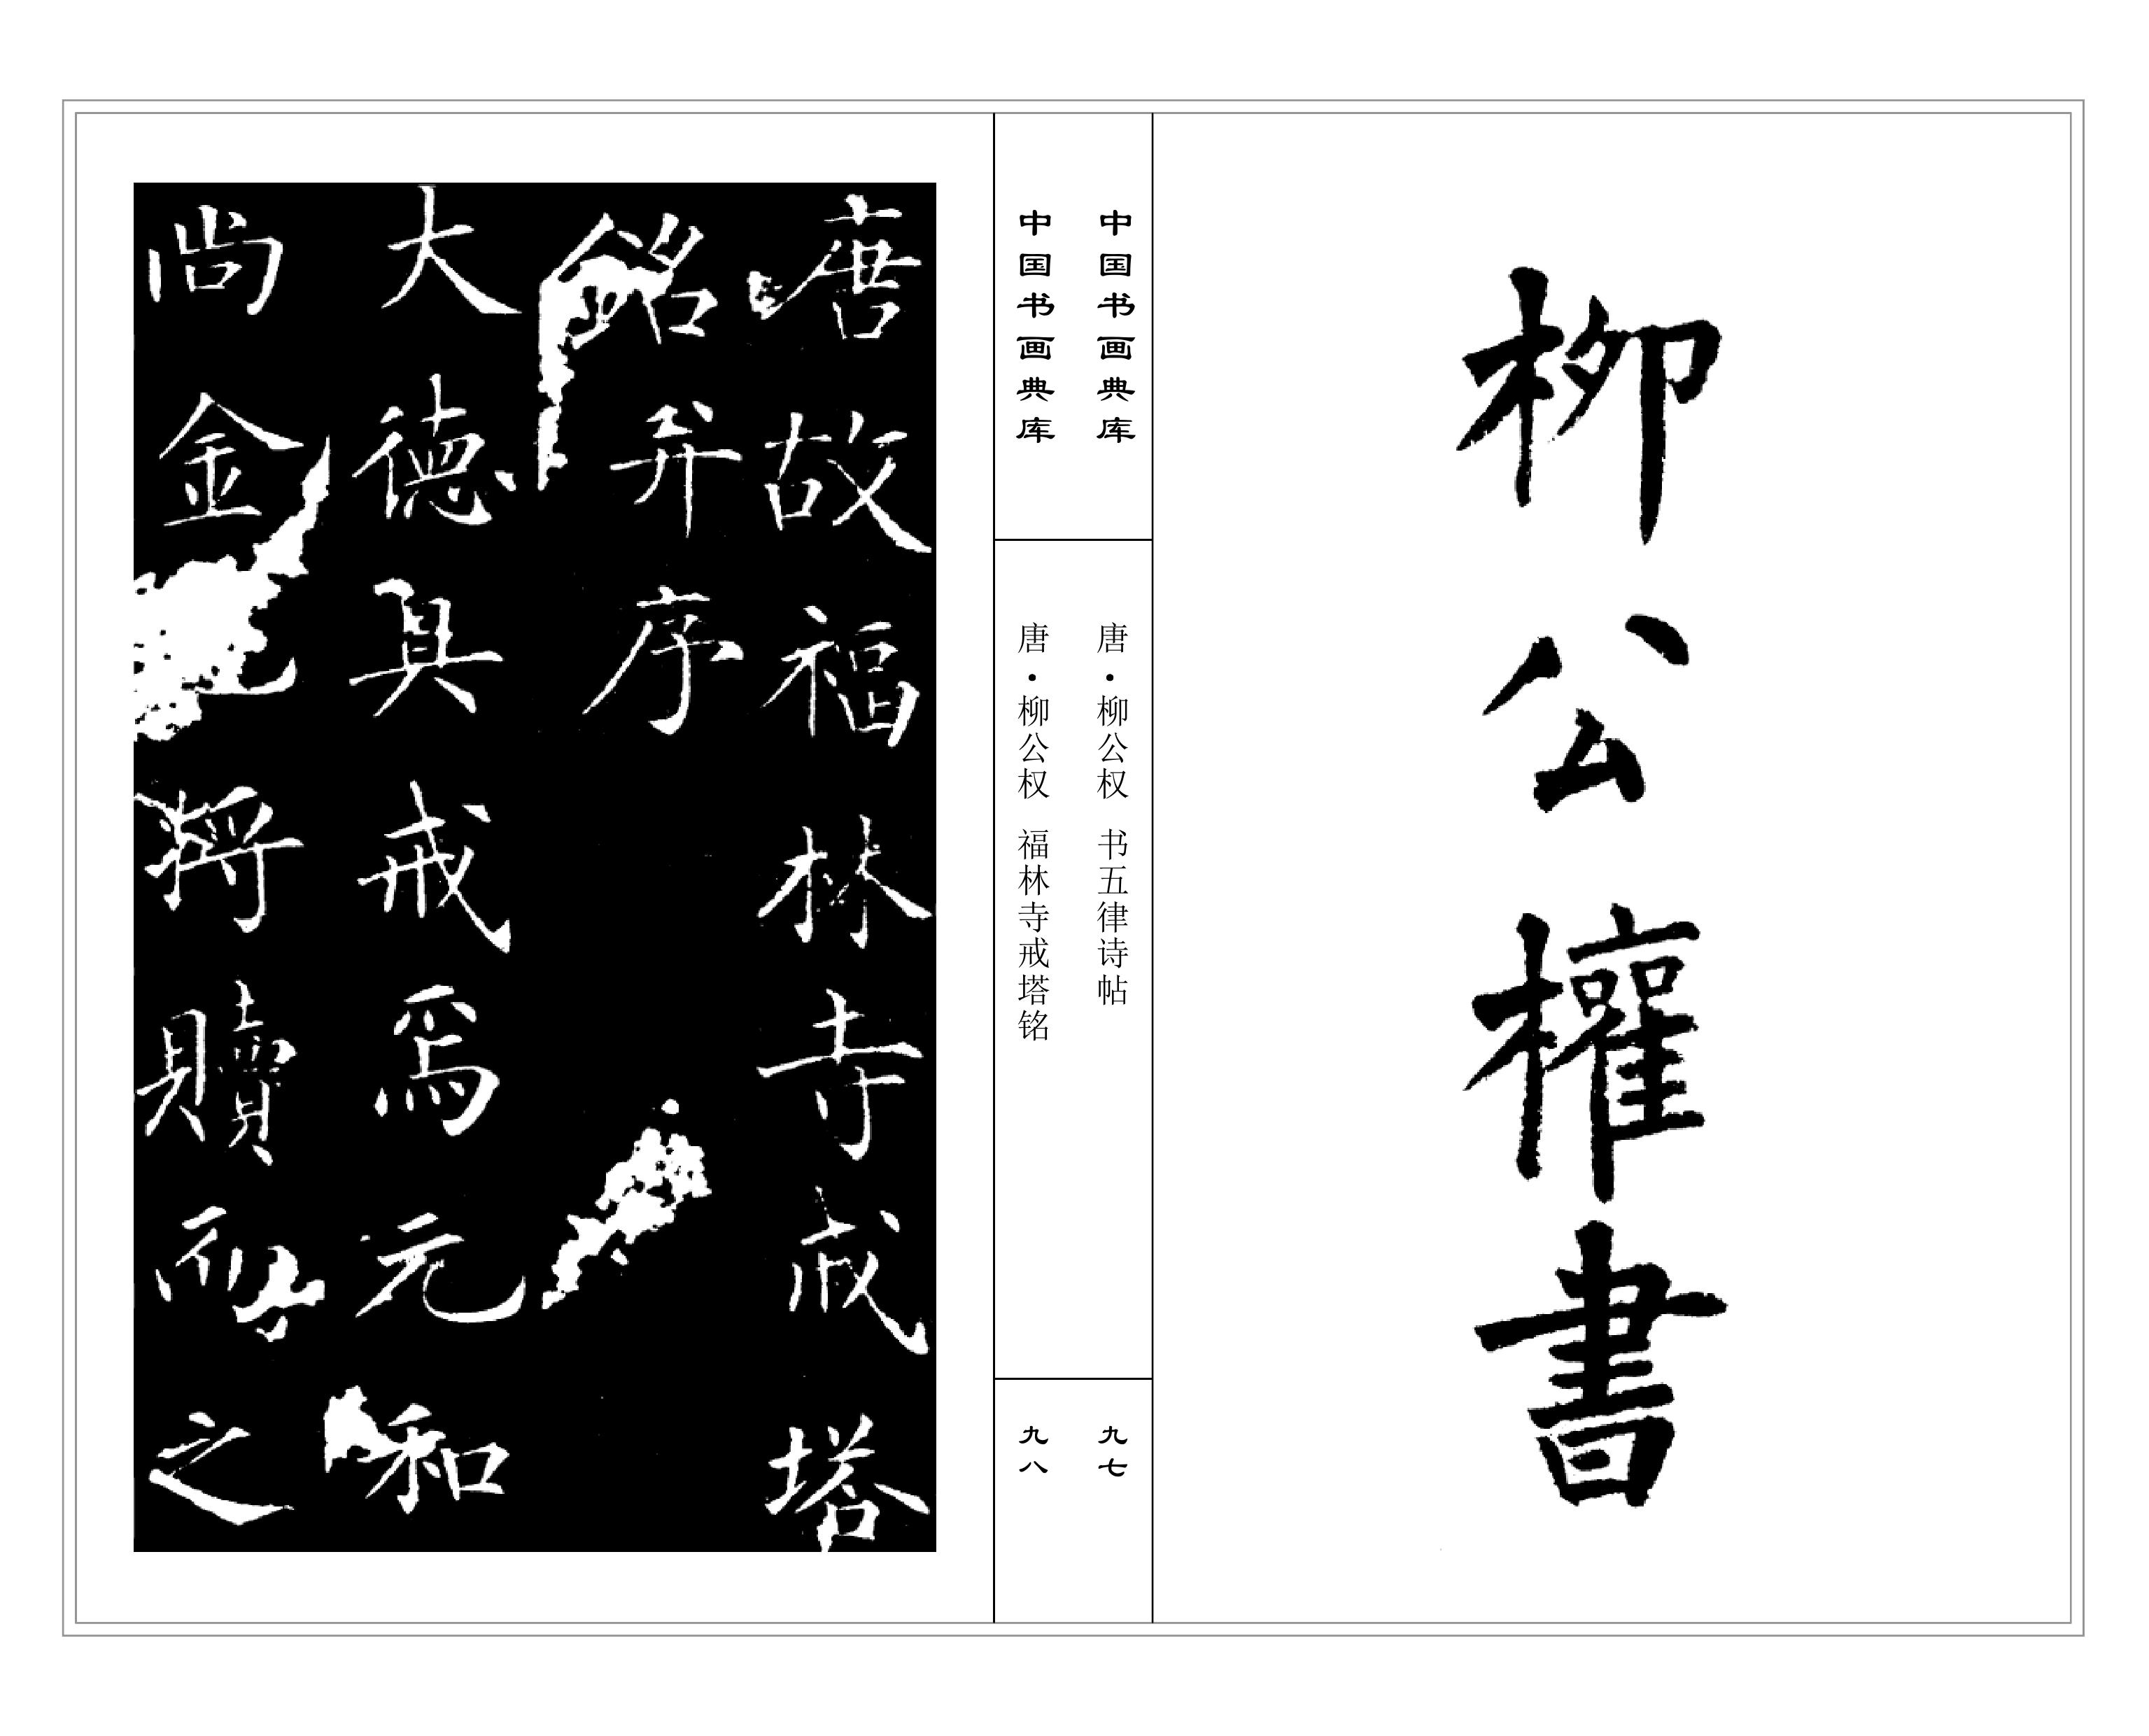 柳公權書
中国书画典库
唐·柳公权 书五律诗帖
九七
中国书画典库
唐·柳公权 福林寺戒塔铭
九八
唐故福林寺戒塔
銘并序
大德具戒焉元和
尚金將贖而之